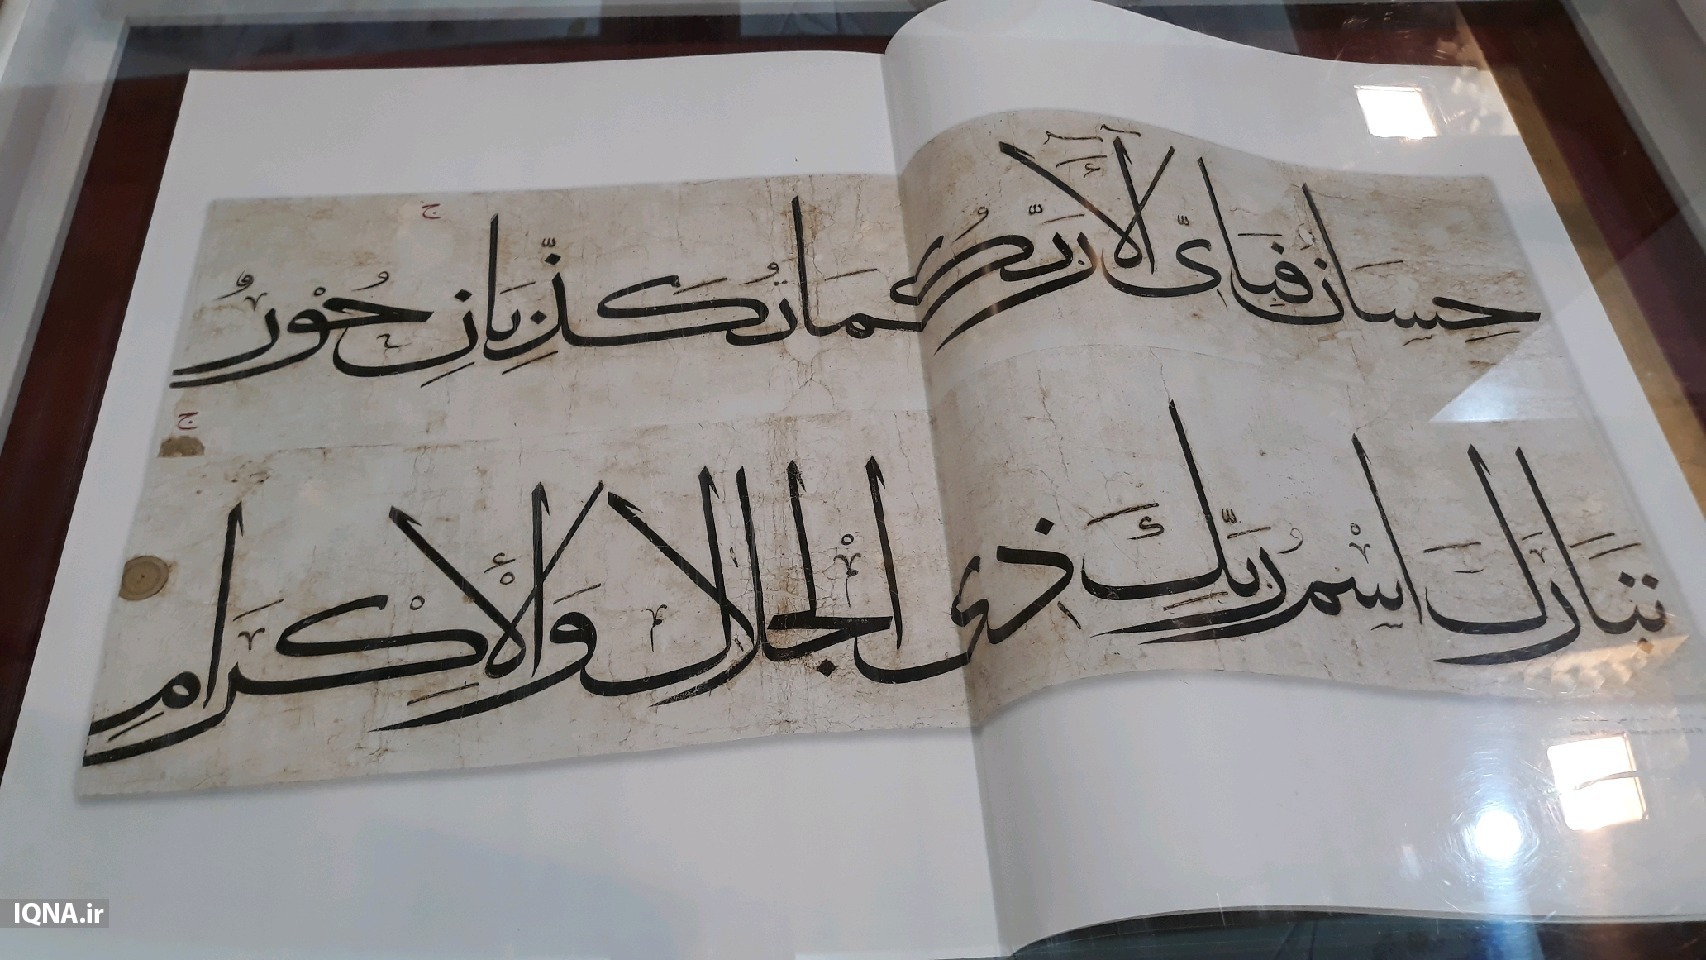 ج
حِسَانٌ فَبِاَىِّ اٰلَآءِ رَبِّكُمَا تُكَذِّبَانِ حُوْرٌ
ج
تَبَارَكَ اسْمُ رَبِّكَ ذِى الْجَلَالِ وَالْأِكْرَامِ
IQNA.ir